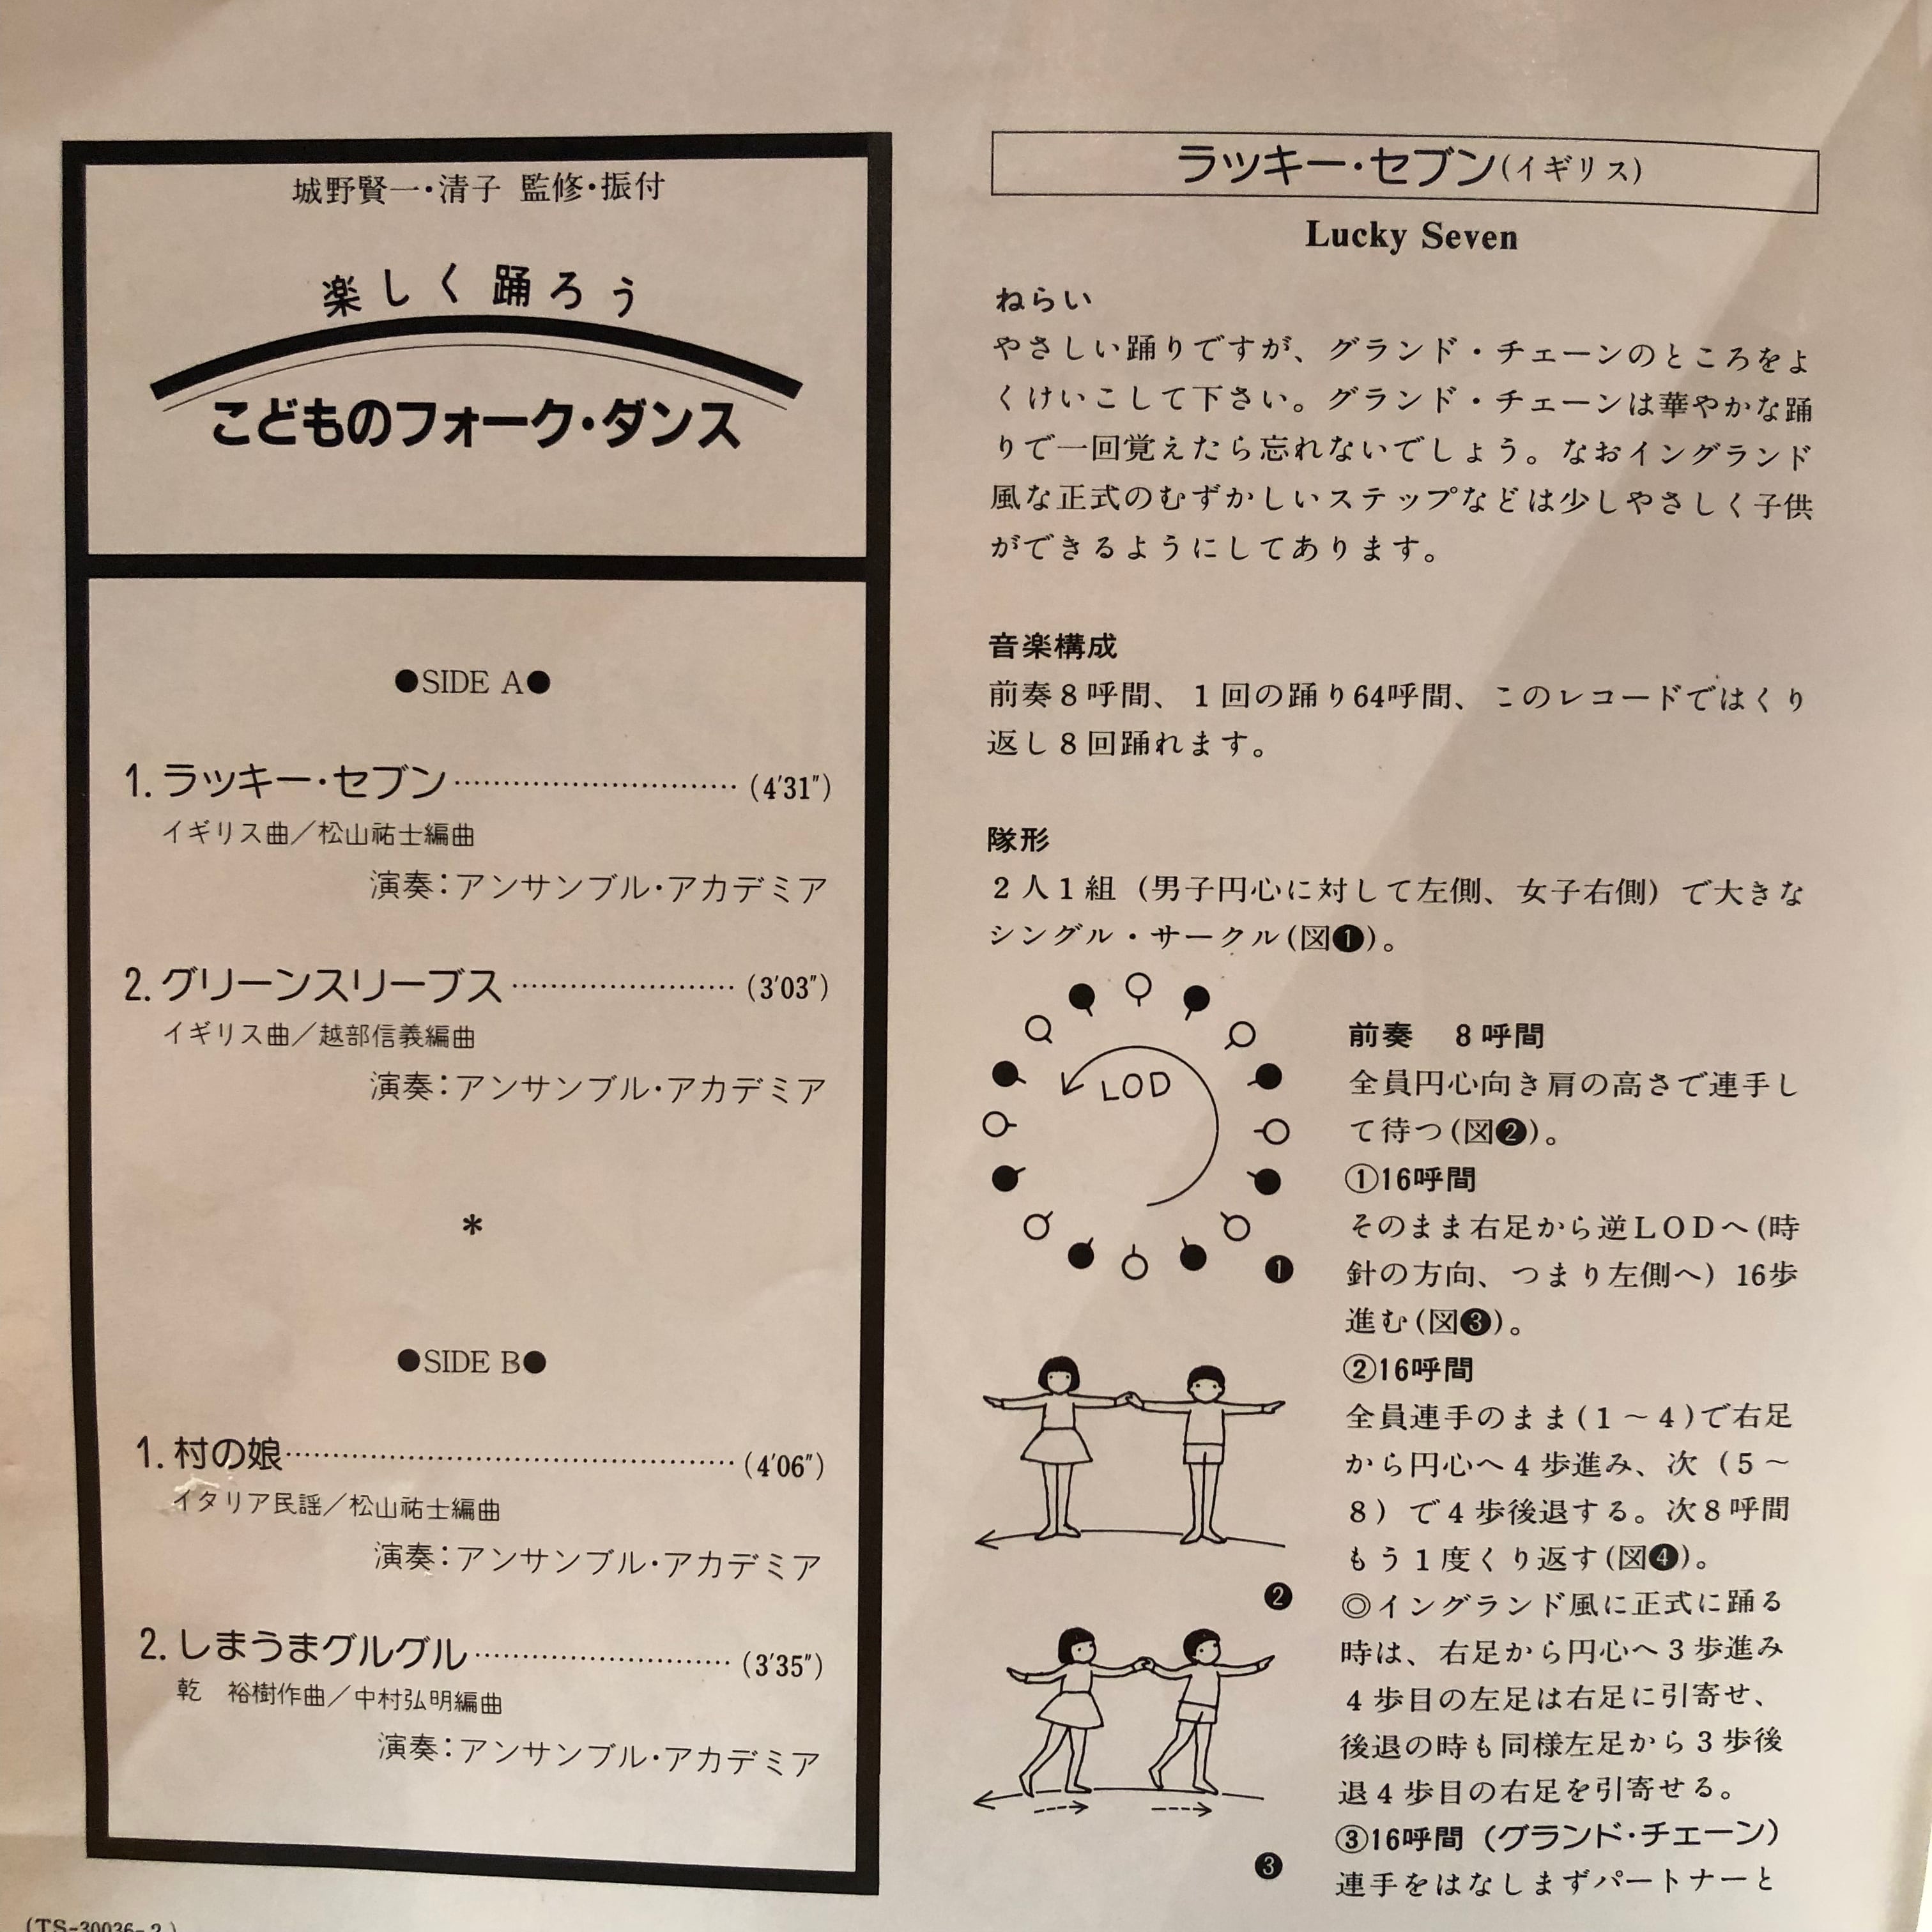 城野賢一・清子 監修・振付
楽しく踊ろう
こどものフォーク・ダンス
●SIDE A●
1. ラッキー・セブン…………………………(4′31″)
イギリス曲／松山祐士編曲
演奏：アンサンブル・アカデミア
2. グリーンスリーブス……………………(3′03″)
イギリス曲／越部信義編曲
演奏：アンサンブル・アカデミア
*
●SIDE B●
1. 村の娘…………………………………………(4′06″)
イタリア民謡／松山祐士編曲
演奏：アンサンブル・アカデミア
2. しまうまグルグル………………………(3′35″)
乾　裕樹作曲／中村弘明編曲
演奏：アンサンブル・アカデミア
(TS-30036-2)
ラッキー・セブン(イギリス)
Lucky Seven
ねらい
やさしい踊りですが、グランド・チェーンのところをよ
くけいこして下さい。グランド・チェーンは華やかな踊
りで一回覚えたら忘れないでしょう。なおイングランド
風な正式のむずかしいステップなどは少しやさしく子供
ができるようにしてあります。
音楽構成
前奏8呼間、1回の踊り64呼間、このレコードではくり
返し8回踊れます。
隊形
2人1組（男子円心に対して左側、女子右側）で大きな
シングル・サークル(図❶)。
LOD
❶
❷
❸
前奏　8呼間
全員円心向き肩の高さで連手し
て待つ(図❷)。
①16呼間
そのまま右足から逆LODへ(時
針の方向、つまり左側へ）16歩
進む(図❸)。
②16呼間
全員連手のまま(1～4)で右足
から円心へ4歩進み、次（5～
8）で4歩後退する。次8呼間
もう1度くり返す(図❹)。
◎イングランド風に正式に踊る
時は、右足から円心へ3歩進み
4歩目の左足は右足に引寄せ、
後退の時も同様左足から3歩後
退4歩目の右足を引寄せる。
③16呼間（グランド・チェーン）
連手をはなしまずパートナーと